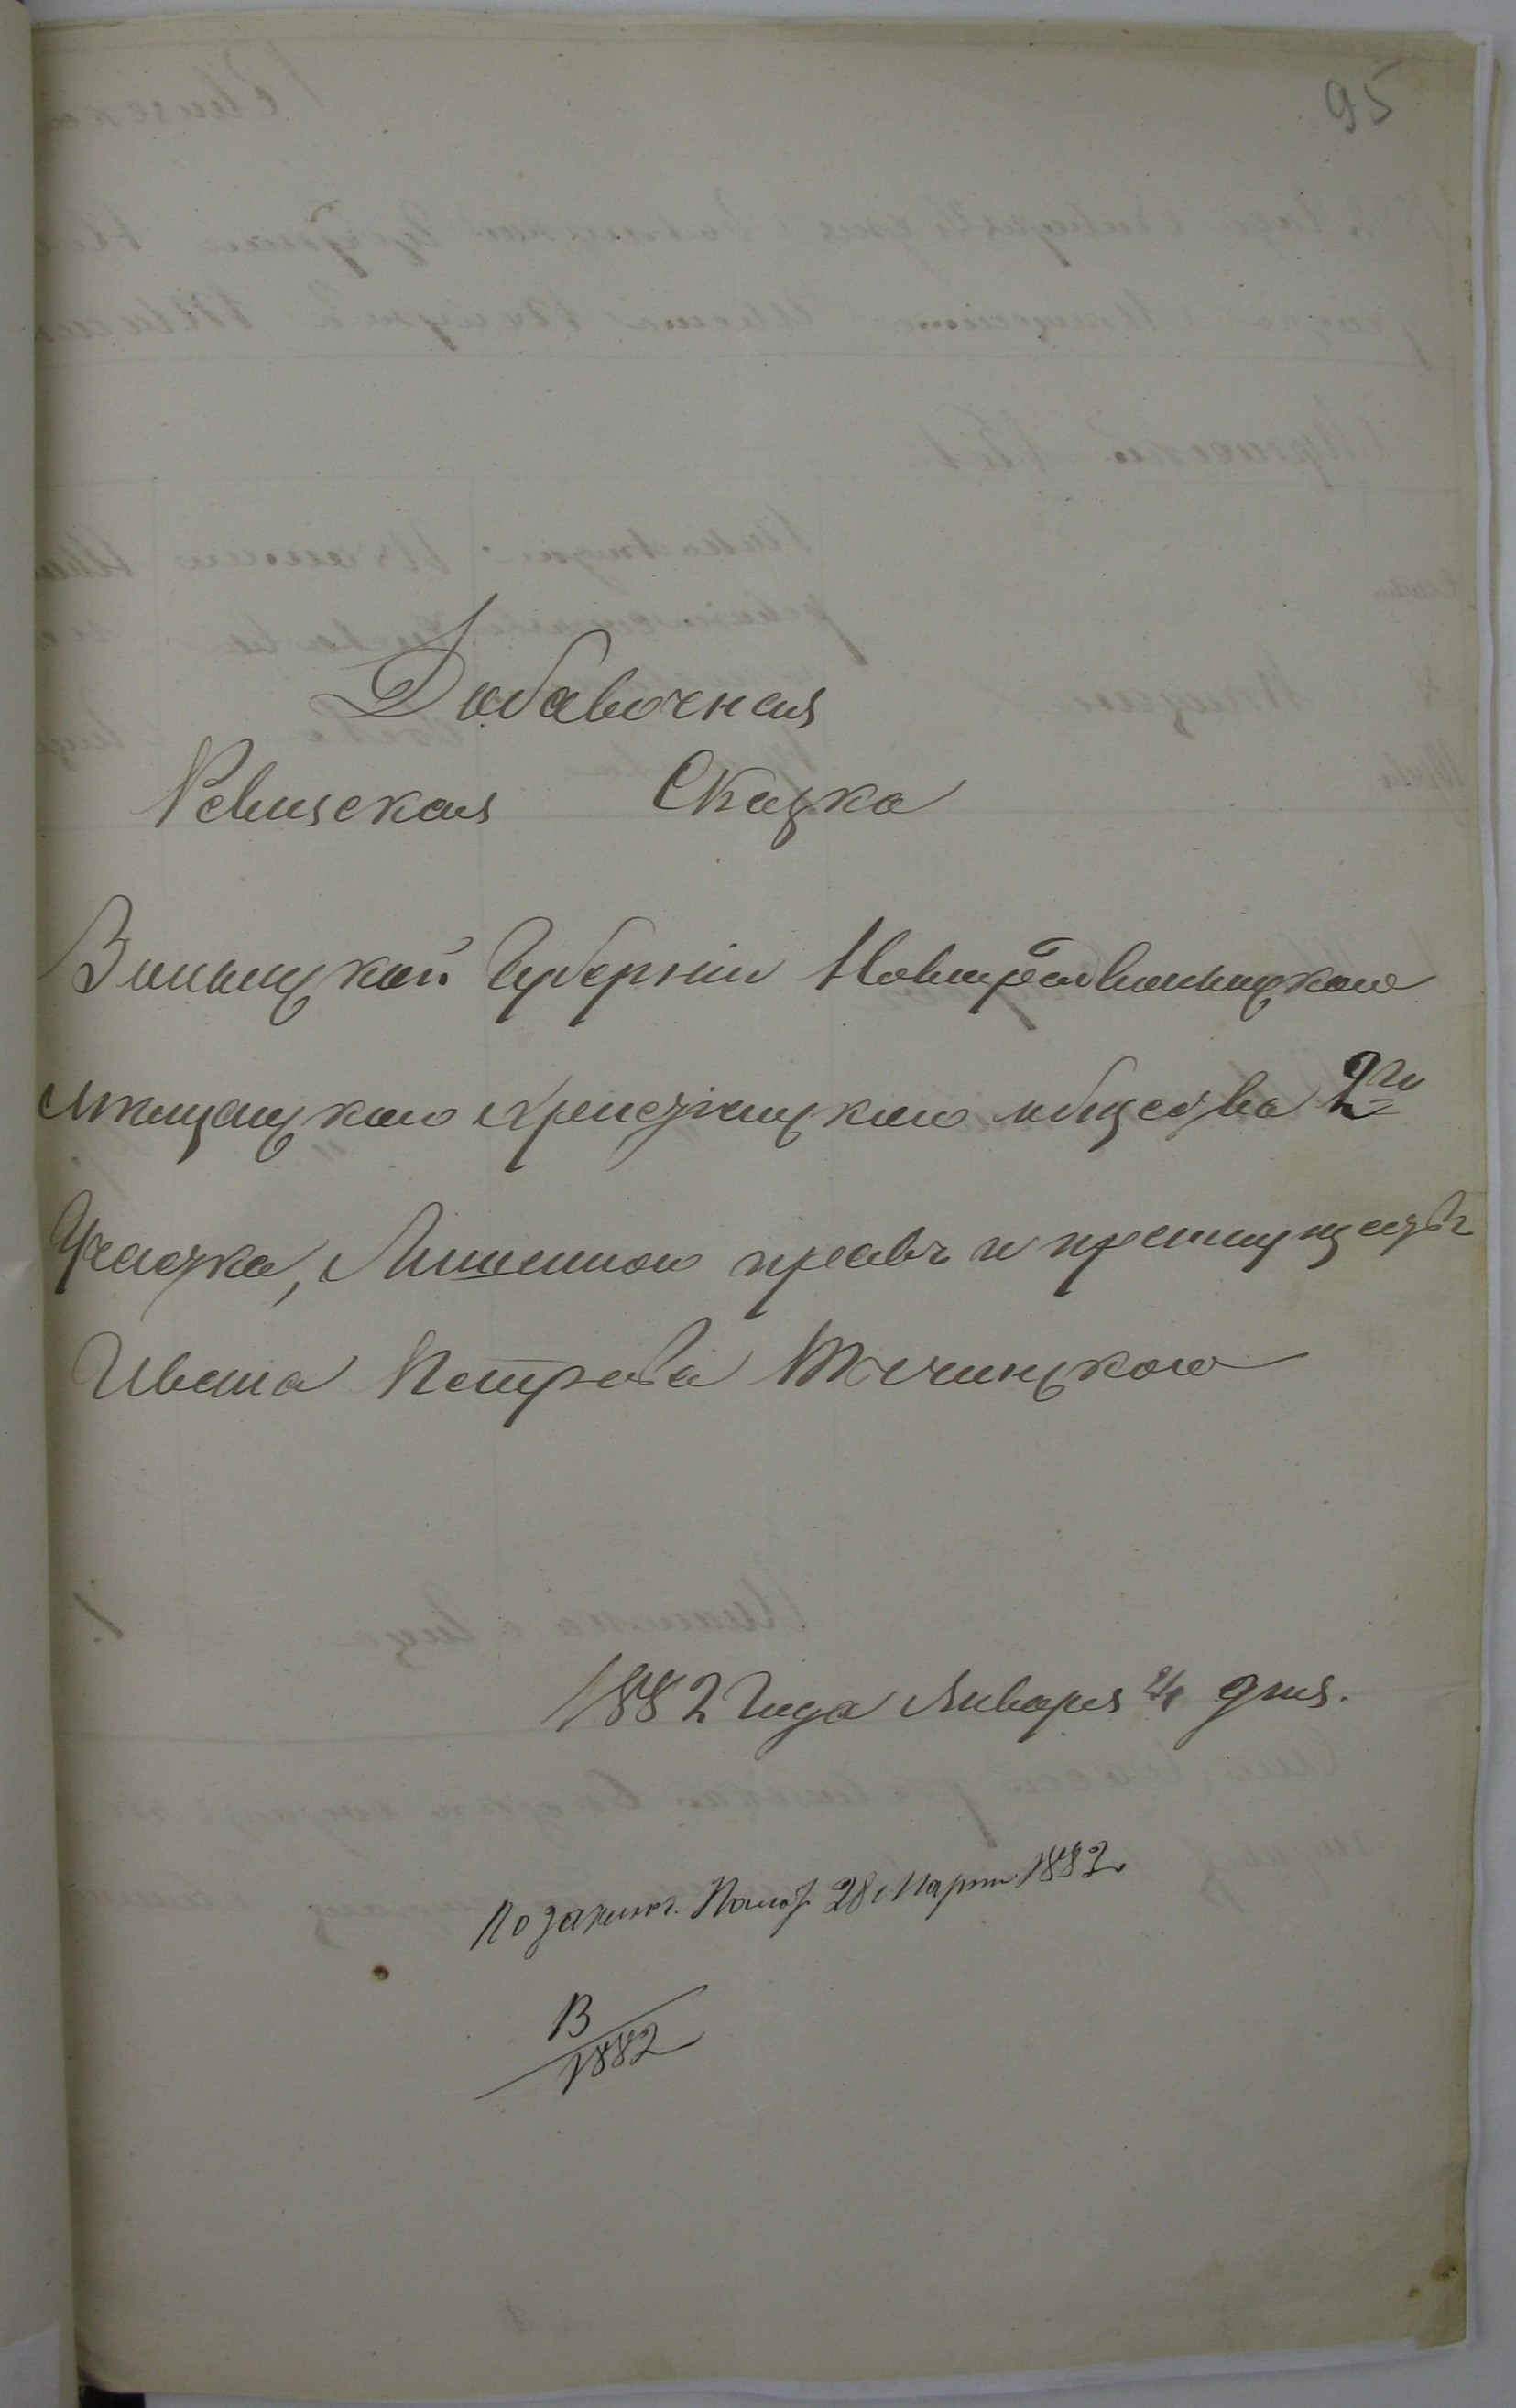 95
Добавочная
Ревизская Сказка
Волынской Губерніи Новоградволынскаго
мѣщанскаго христіанскаго общества 2го
Участка, Лишеннаго правъ и преимуществъ
Ивана Петрова
1882 Года Января 24 дня.
По 28 Марта 1882
В
1882